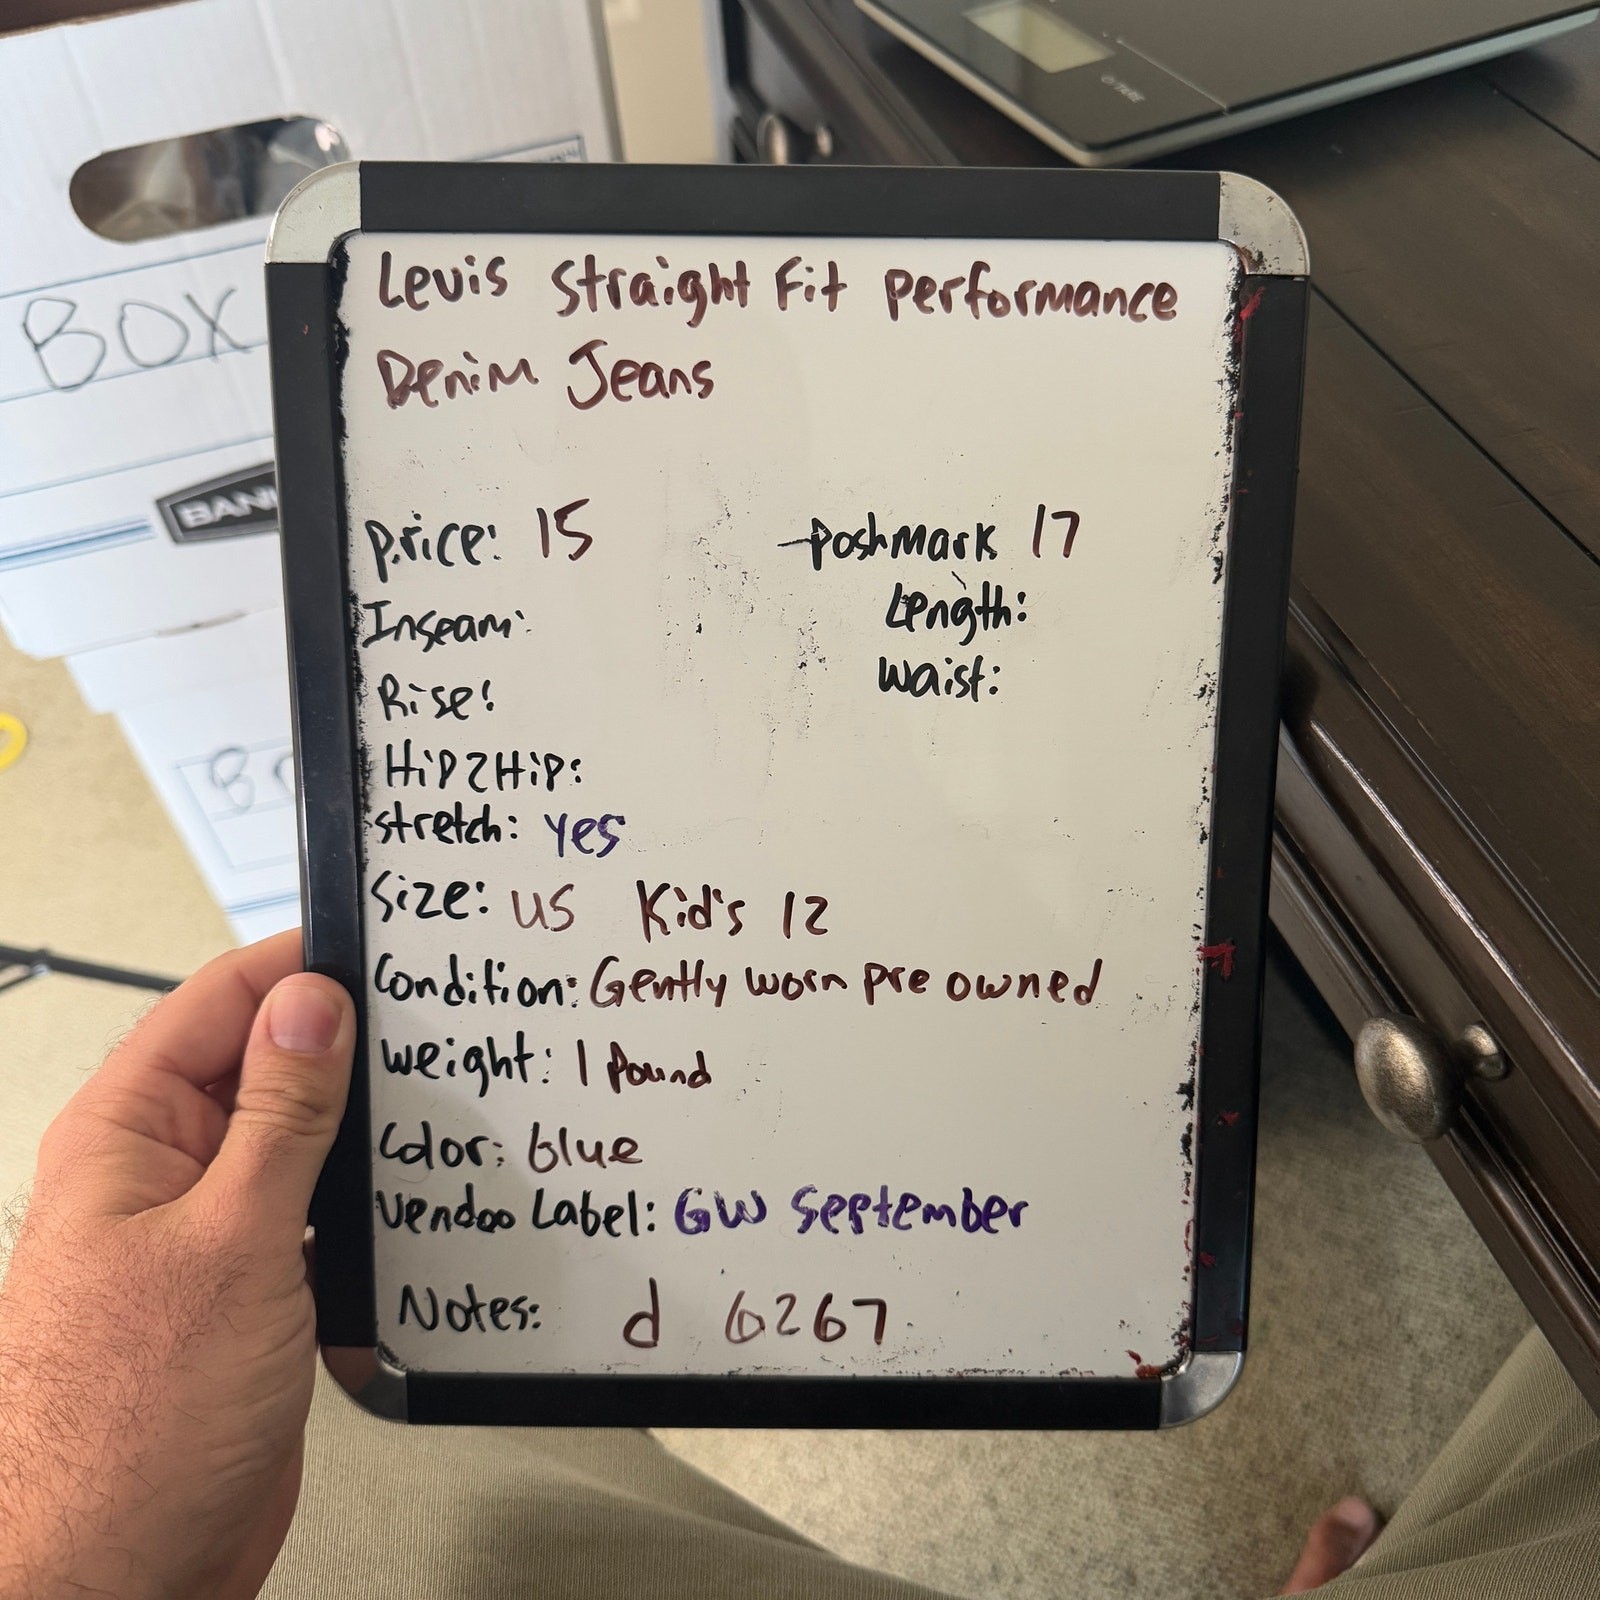 Levis Straight Fit Performance
Denim Jeans
Price: 15
-Poshmark 17
Inseam:
Length:
Rise:
Waist:
Hip2Hip:
Stretch: Yes
Size: US Kid's 12
Condition: Gently worn pre owned
Weight: 1 Pound
Color: blue
Vendoo Label: GW September
Notes: d 6267
BOX
BANK
BO
TARE